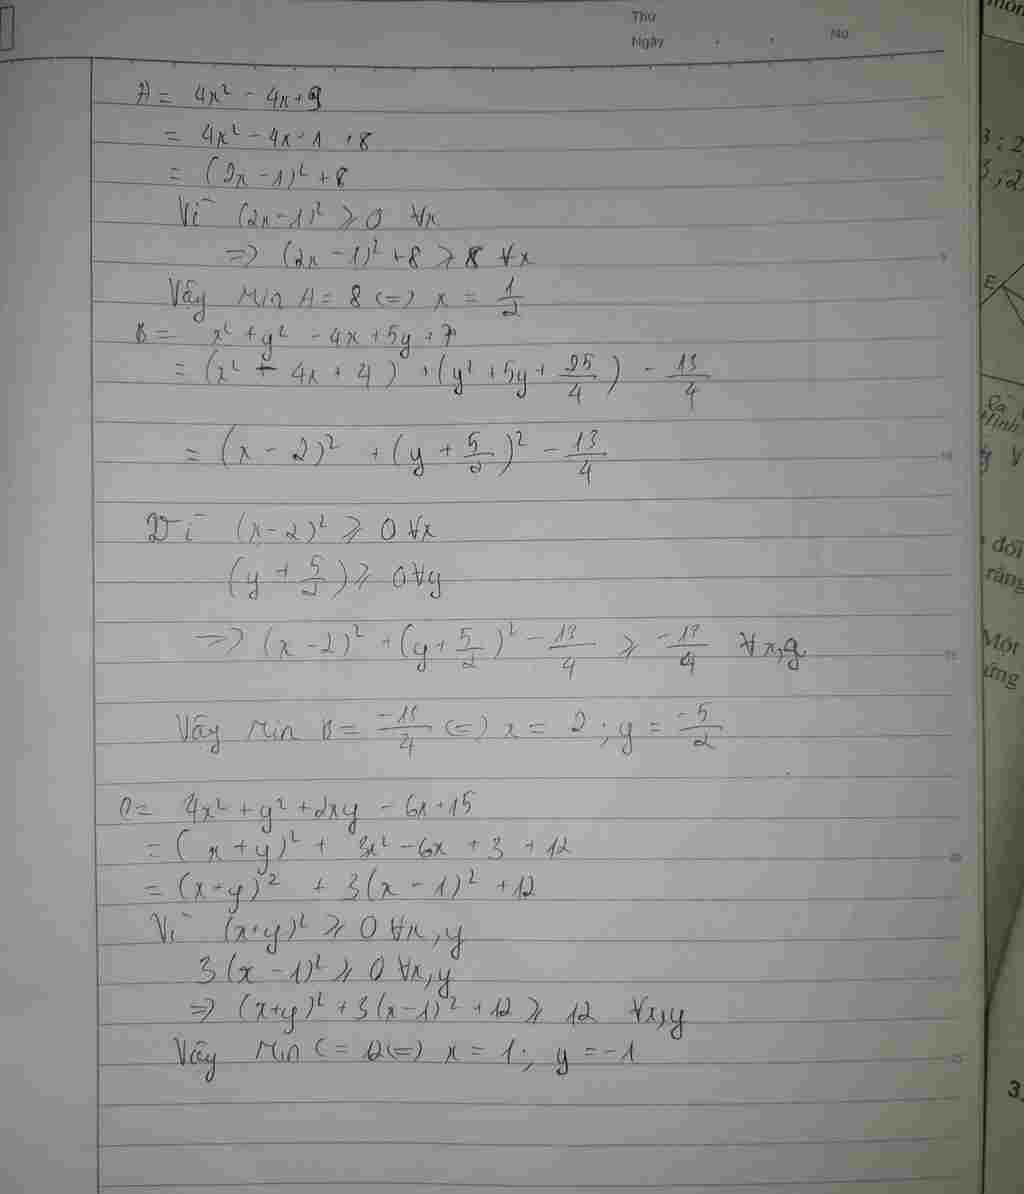 Thứ
Ngày . . No
A = 4x² - 4x + 9
= 4x² - 4x + 1 + 8
= (2x - 1)² + 8
Vì (2x - 1)² ≥ 0 ∀x
=> (2x - 1)² + 8 ≥ 8 ∀x
Vậy Min A = 8 <=> x = 1/2
B = x² + y² - 4x + 5y + 7
= (x² - 4x + 4) + (y² + 5y + 25/4) - 13/4
= (x - 2)² + (y + 5/2)² - 13/4
Vì (x - 2)² ≥ 0 ∀x
(y + 5/2) ≥ 0 ∀y
=> (x - 2)² + (y + 5/2)² - 13/4 ≥ -13/4 ∀x,y
Vậy Min B = -13/4 <=> x = 2 ; y = -5/2
C = 4x² + y² + 2xy - 6x + 15
= (x + y)² + 3x² - 6x + 3 + 12
= (x + y)² + 3(x - 1)² + 12
Vì (x + y)² ≥ 0 ∀x,y
3(x - 1)² ≥ 0 ∀x,y
=> (x + y)² + 3(x - 1)² + 12 ≥ 12 ∀x,y
Vậy Min C = 12 <=> x = 1 ; y = -1
3 : 2
3 ; 2
E
đối
rằng
Một
ứng
3.